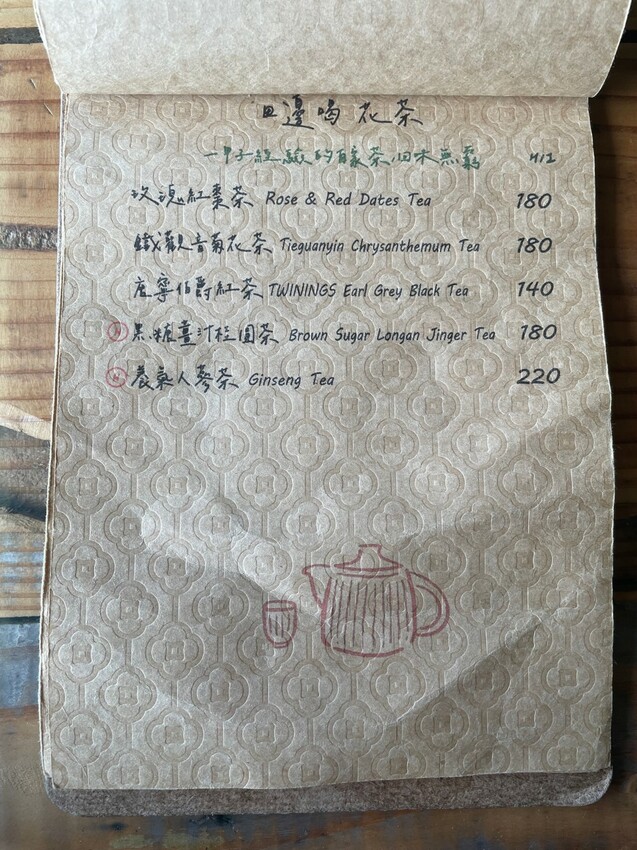 田邊喝花茶
一甲子經驗的自家茶 回味無窮 H/I
玫瑰紅棗茶 Rose & Red Dates Tea 180
鐵觀音菊花茶 Tieguanyin Chrysanthemum Tea 180
唐寧伯爵紅茶 TWININGS Earl Grey Black Tea 140
黑糖薑汁桂圓茶 Brown Sugar Longan Jinger Tea 180
養氣人蔘茶 Ginseng Tea 220